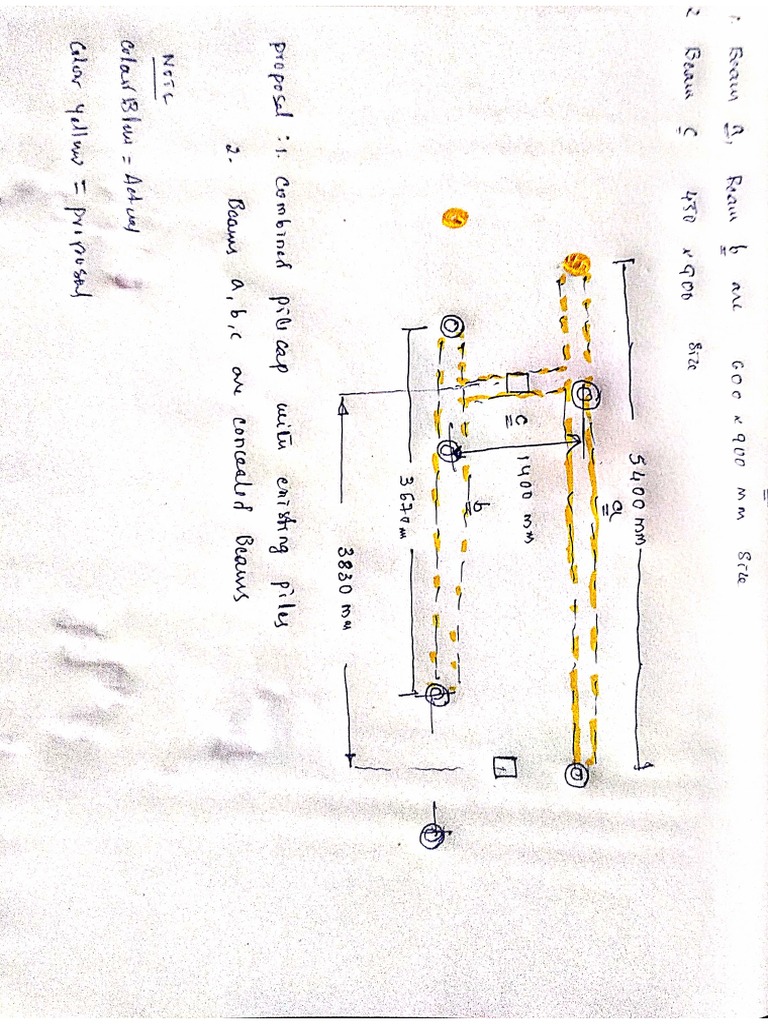 1 Beam a, Beam b are 600 x 900 mm Size
2 Beam c 450 x 900 Size
5400 mm
a
1400 mm
c
b
3670 mm
3830 mm
proposal : 1. Combined pile cap with existing piles
2. Beams a, b, c are concealed Beams
NOTE
Colour Blue = Actual
Color Yellow = proposal